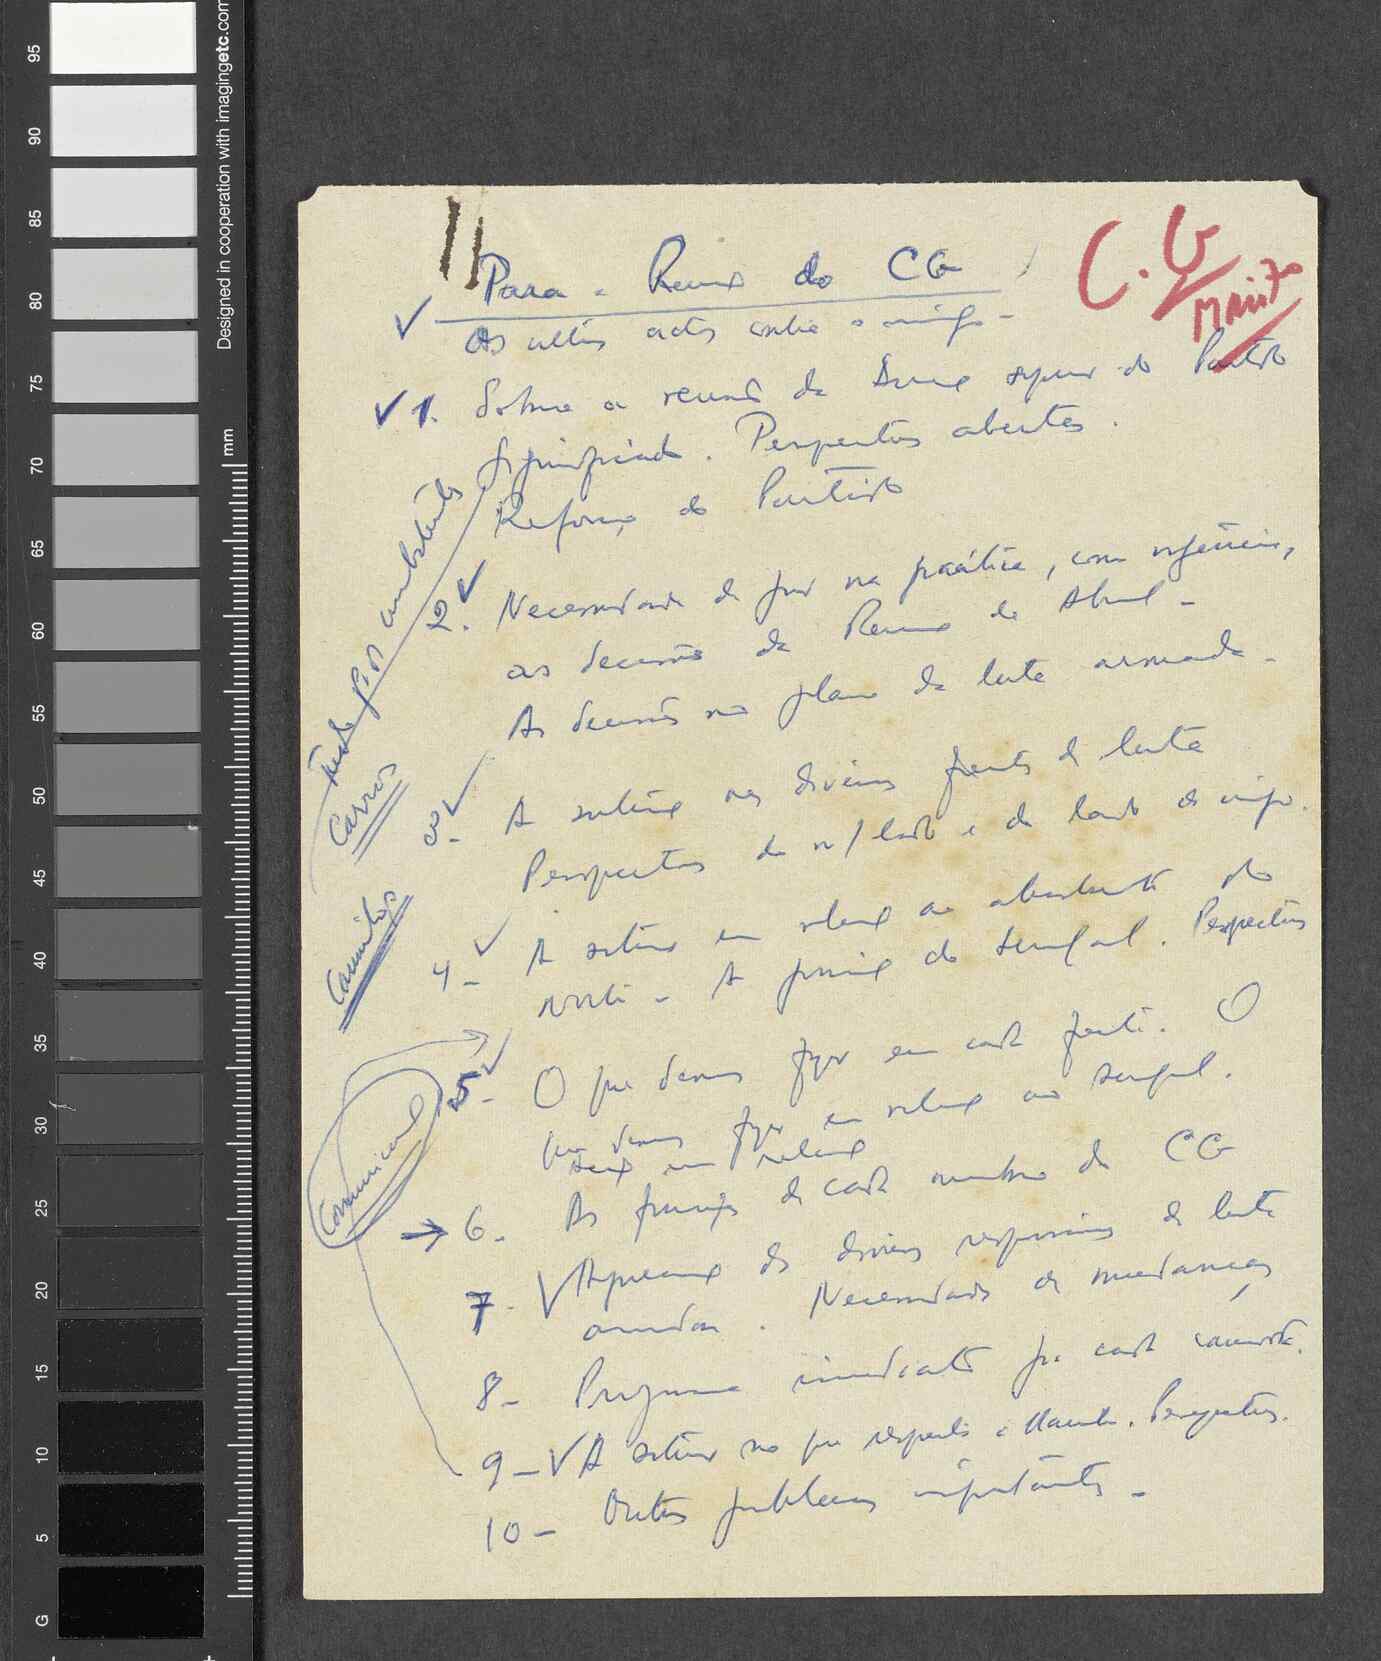 C.G
MAIO 70
Para a Reunião do CG
Os ults actos contra o inimigo -
✓ 1. Sobre a reunião da Direcção Superior do Partido
Significado. Perspectivas abertas.
Reforço do Partido
2. ✓ Necessidade de pôr na prática, com urgência,
as decisões da Reunião de Abril -
As decisões no plano da luta armada -
3 - ✓ A situação nas diversas frentes de luta
Perspectivas do n/ lado e do lado do inimigo.
4 - ✓ A situação em relação ao
Norte - A posição do Senegal. Perspectivas
5 - ✓ O que devemos fazer em cada frente. O
que devemos fazer em relação ao Senegal.
em relação
→ 6. As funções de cada membro do CG
7. ✓ Apreciação dos diversos responsáveis da luta
armada. Necessidade de mudanças
8 - Programa imediato para cada camarada.
9 - ✓ A situação no que respeita a . Perspectivas.
10 - Outros problemas importantes -
combatentes
Carros
Caminhos
Comunicado
95
90
85
80
75
70
65
60
55
50
45
40
35
30
25
20
15
10
5
G
mm
Designed in cooperation with imagingetc.com